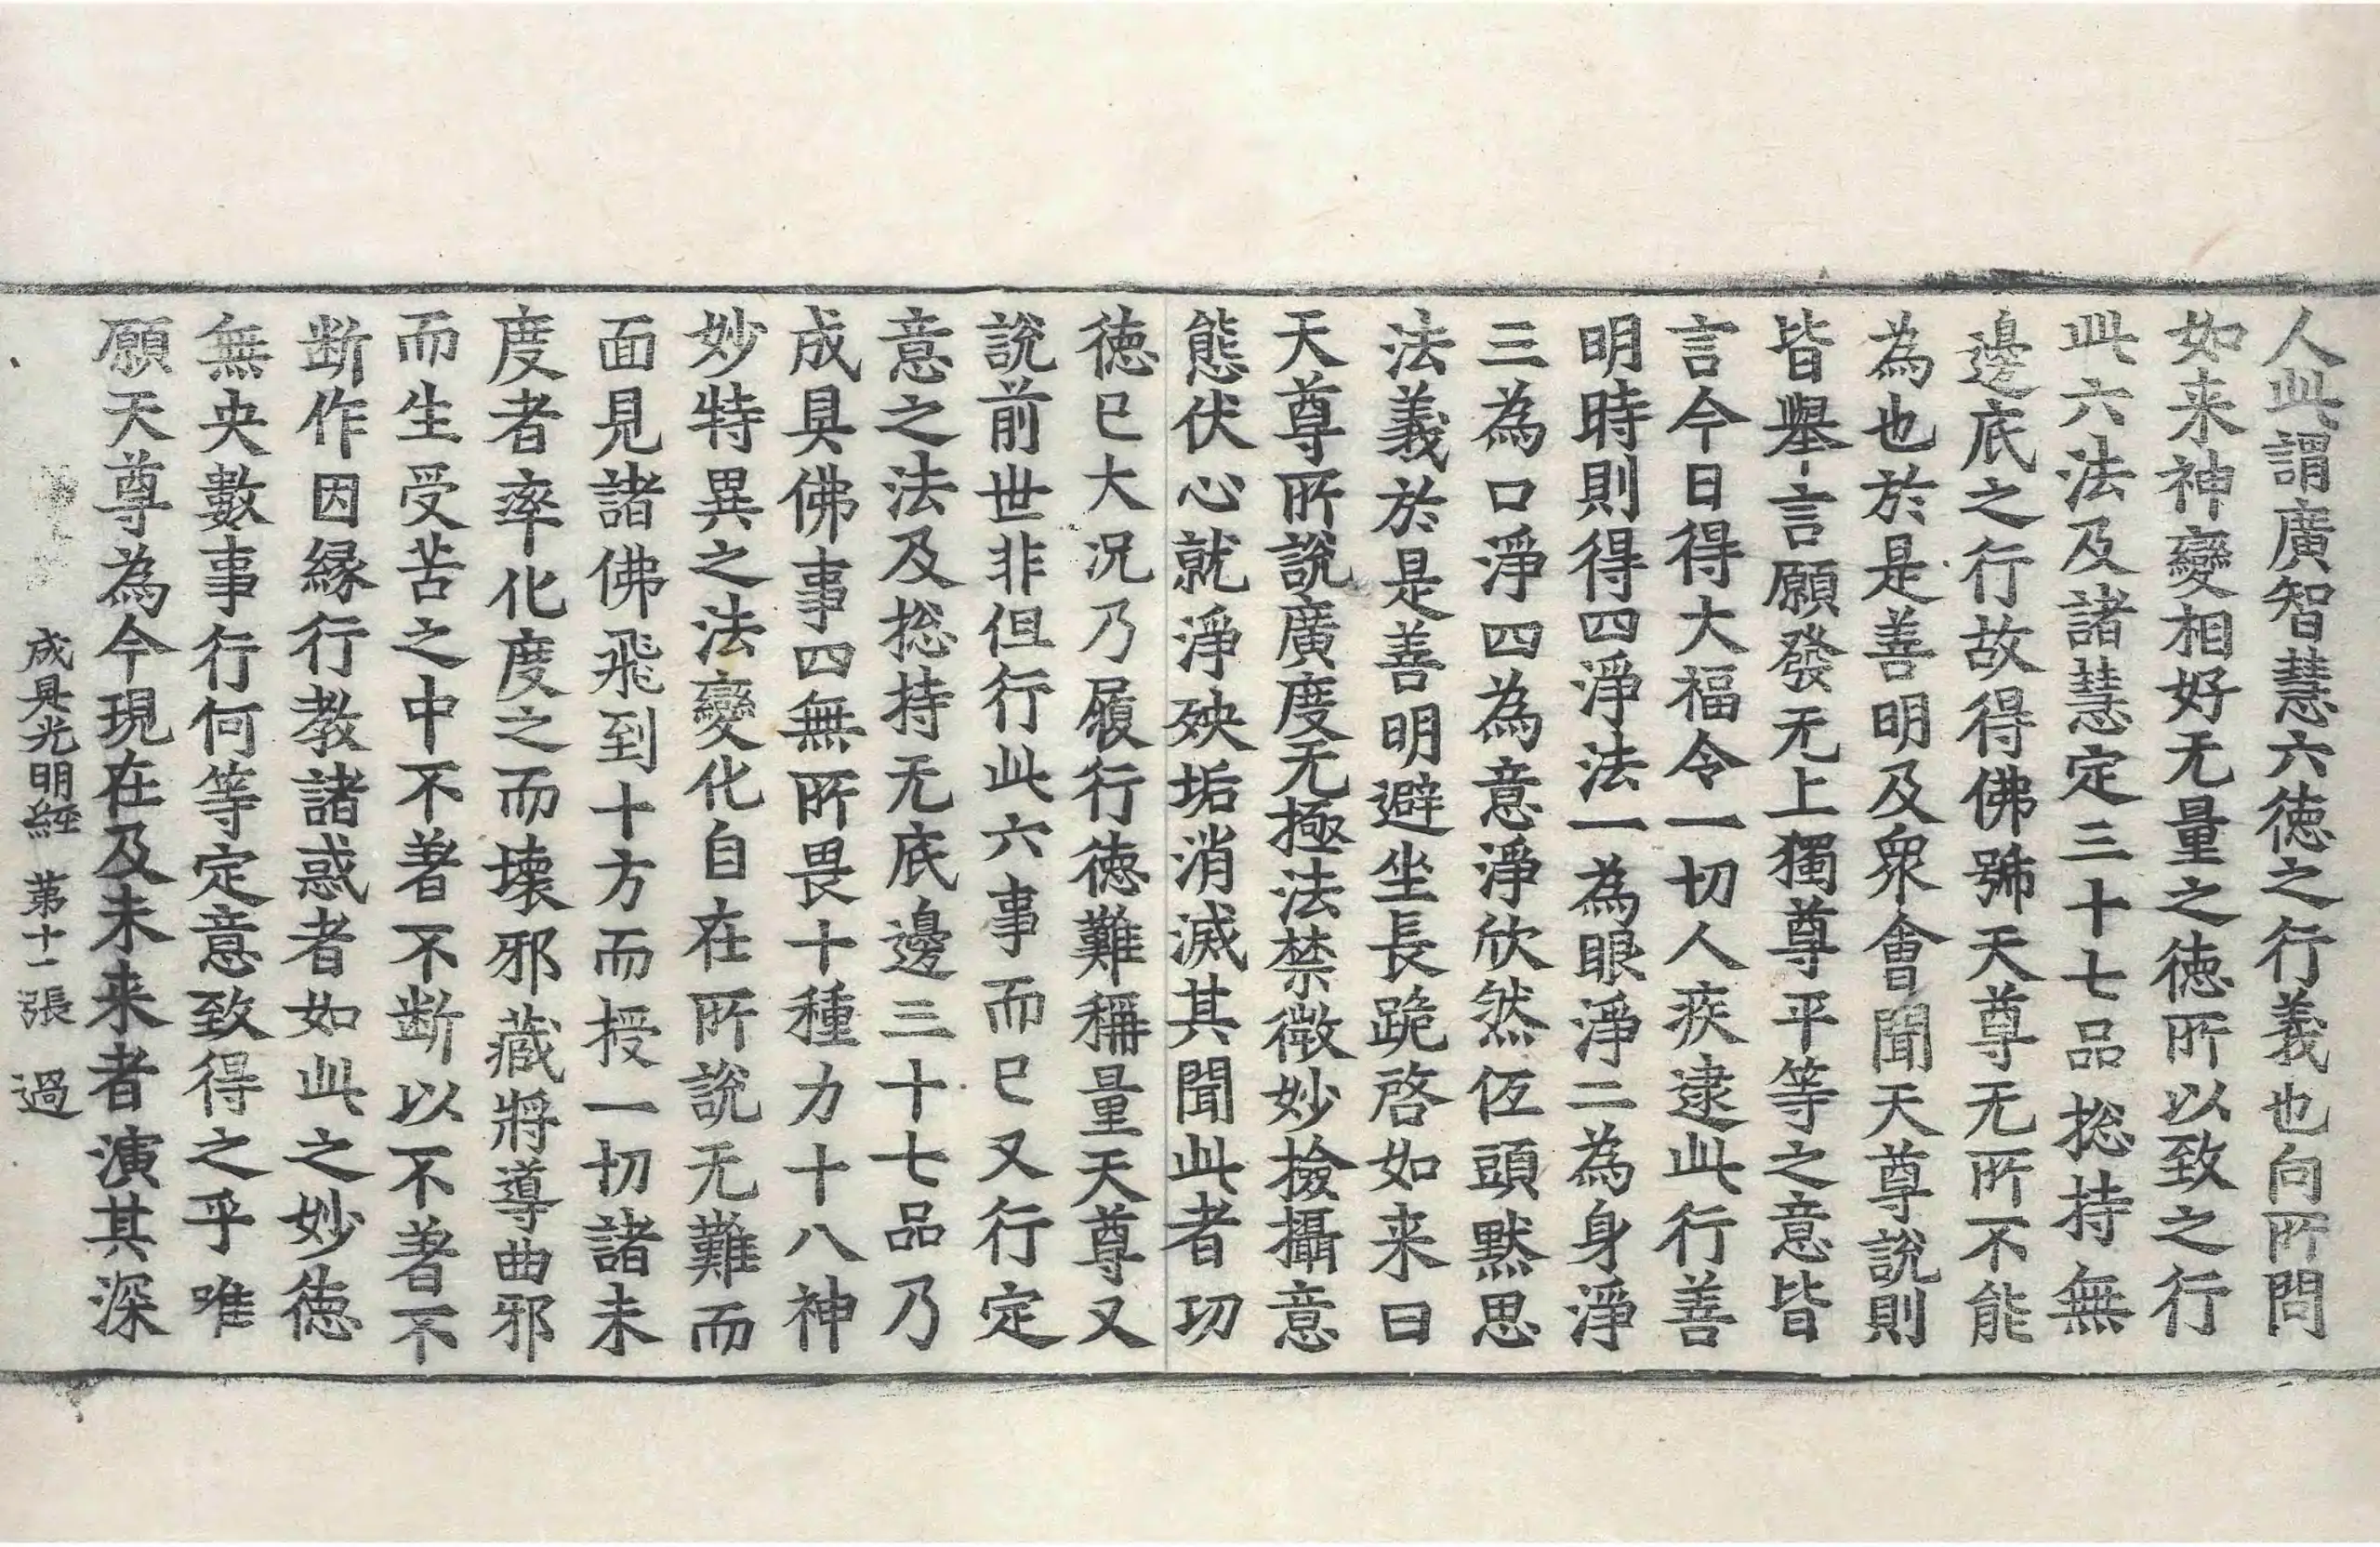 人此謂廣智慧六徳之行義也向所問
如来神變相好无量之徳所以致之行
此六法及諸慧定三十七品捴持無
邊底之行故得佛號天尊无所不能
為也於是善明及衆會聞天尊說則
皆舉言願發无上獨尊平等之意皆
言今日得大福令一切人疾逮此行善
明時則得四淨法一為眼淨二為身淨
三為口淨四為意淨欣然伭頭默思
法義於是善明避坐長跪啓如来曰
天尊所說廣度无極法禁微妙撿攝意
態伏心就淨殃垢消滅其聞此者功
徳已大况乃履行徳難稱量天尊又
說前世非但行此六事而已又行定
意之法及捴持无底邊三十七品乃
成具佛事四無所畏十種力十八神
妙特異之法變化自在所說无難而
面見諸佛飛到十方而授一切諸未
度者率化度之而壞邪藏將導曲邪
而生受苦之中不著不断以不著不
断作因縁行教諸惑者如此之妙徳
無央數事行何等定意致得之乎唯
願天尊為今現在及未来者演其深
成具光明經 苐十一張 過